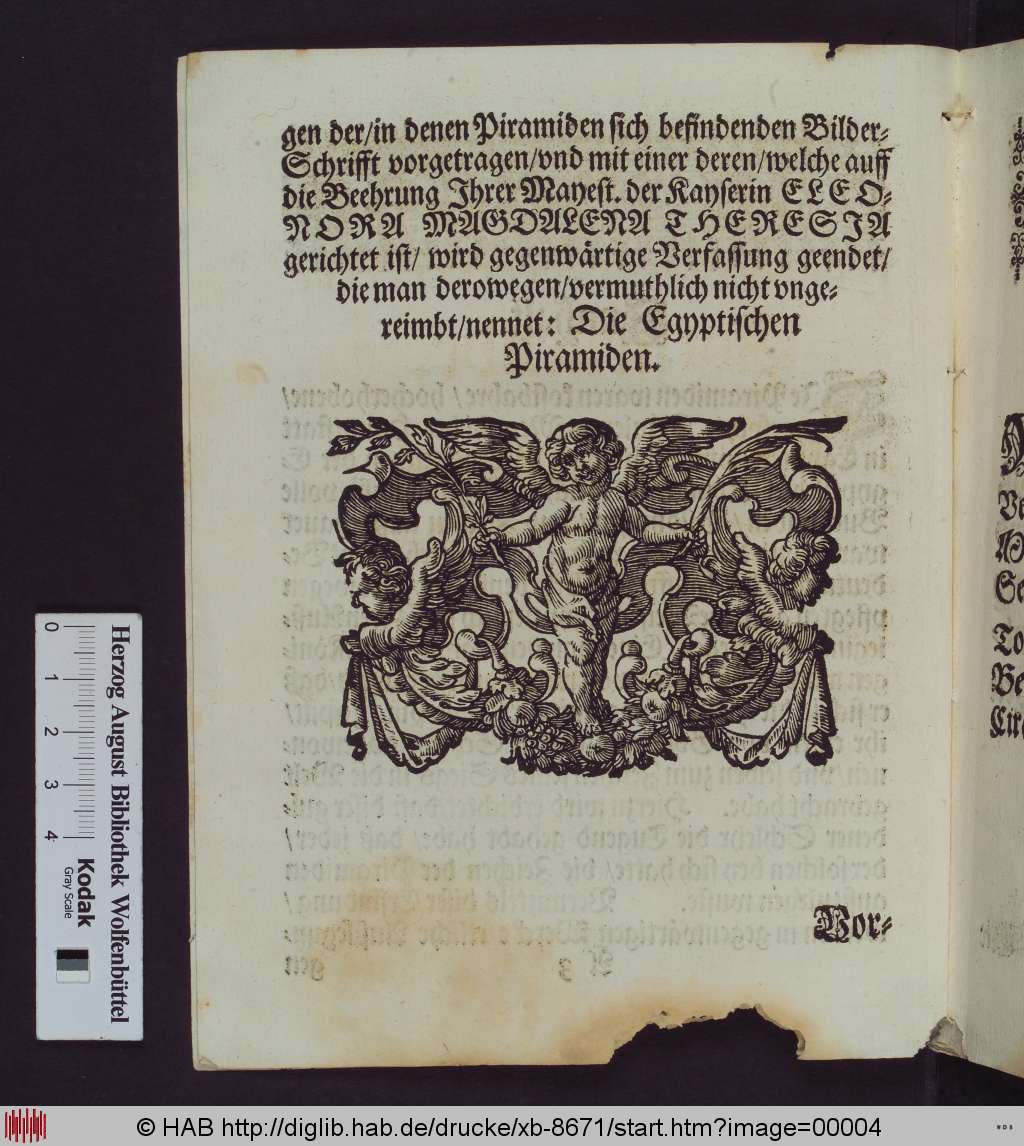 gen der/in denen Piramiden sich befindenden Bilder-
Schrifft vorgetragen/vnd mit einer deren/welche auff
die Beehrung Ihrer Mayest. der Kayserin ELEO-
NORA MAGDALENA THERESIA
gerichtet ist/ wird gegenwärtige Verfassung geendet/
die man derowegen/vermuthlich nicht vnge-
reimbt/nennet: Die Egyptischen
Piramiden.
Vor-
Herzog August Bibliothek Wolfenbüttel
0 1 2 3 4
Kodak
Gray Scale
© HAB http://diglib.hab.de/drucke/xb-8671/start.htm?image=00004